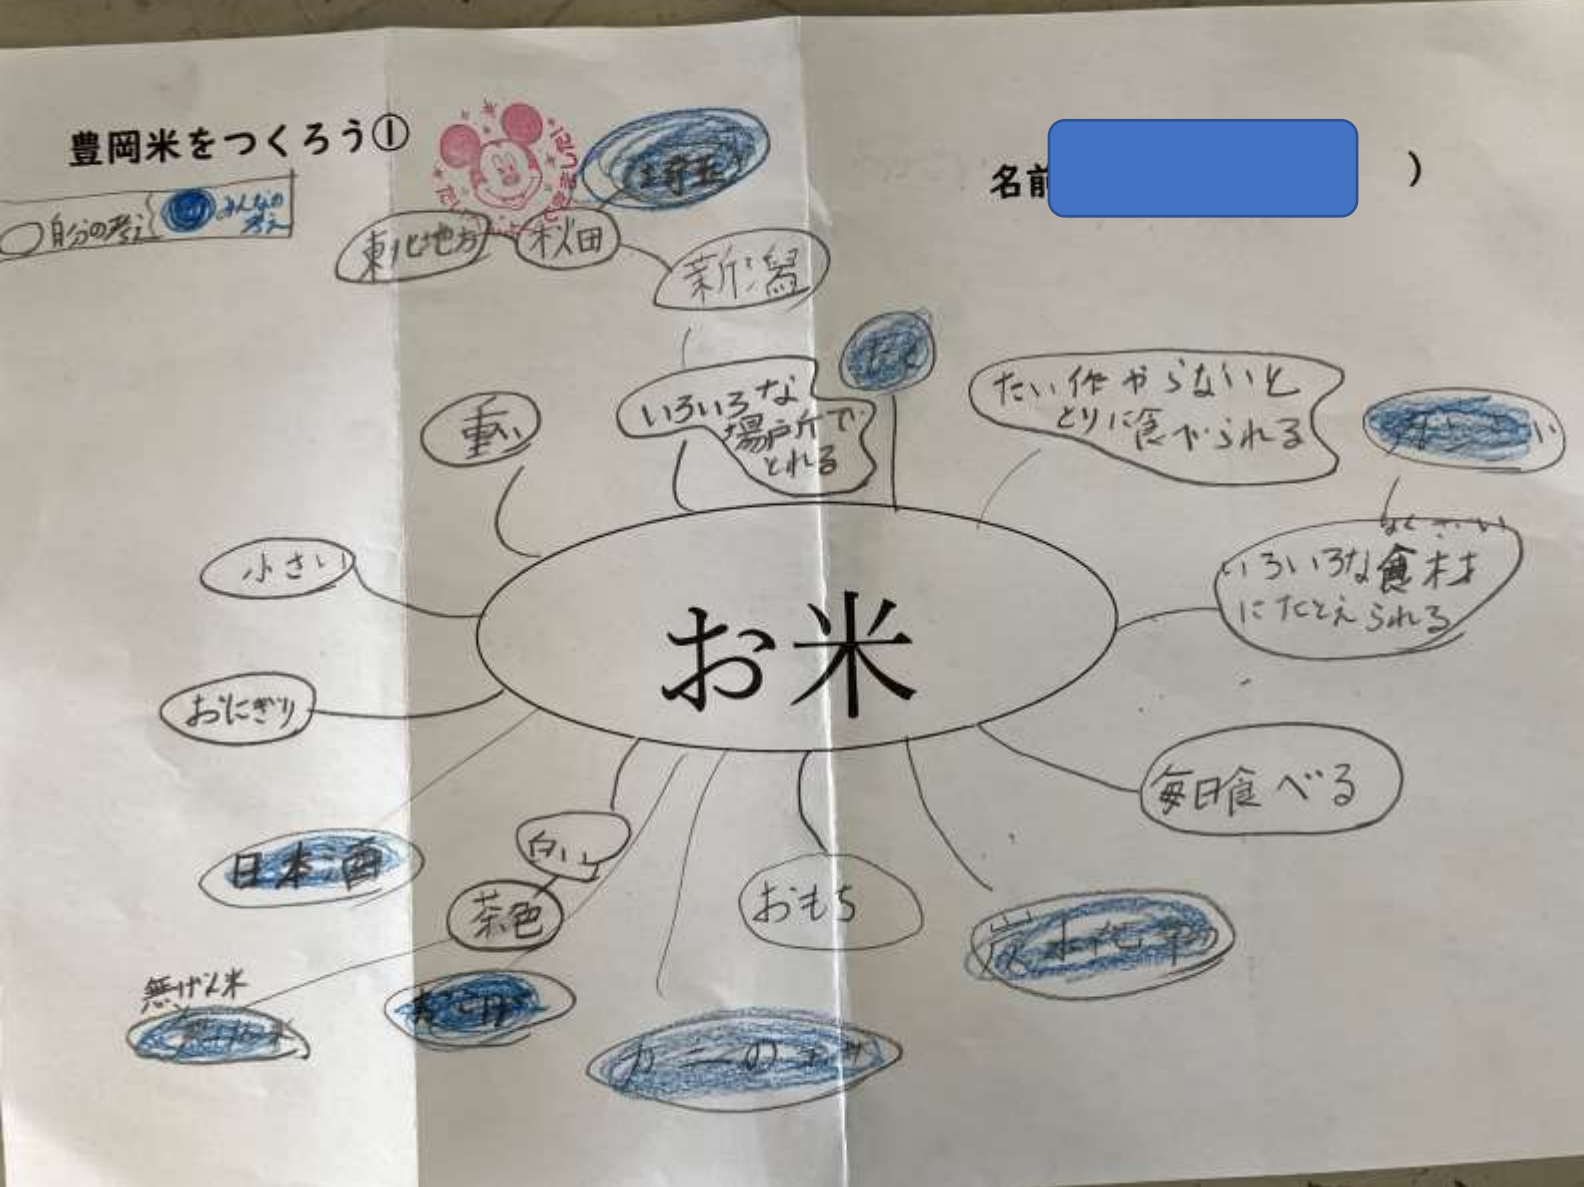 豊岡米をつくろう①
名前
)
自分の考え
みんなの
考え
埼玉
東北地方
秋田
新潟
重い
いろいろな
場所で
とれる
たい作やらないと
とりに食べられる
小さい
いろいろな食材
にたとえられる
お米
おにぎり
毎日食べる
日本酒
白い
茶色
おもち
炭水化物
無げん米